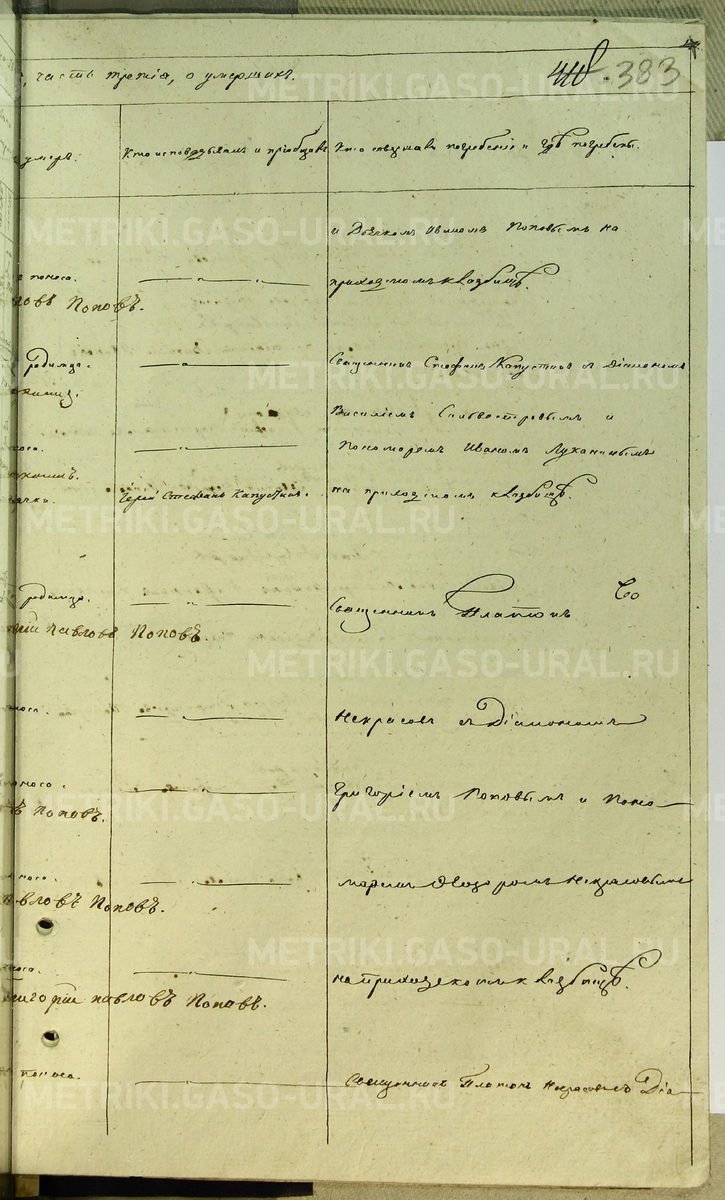 часть третія, о умершихъ.
383
умеръ.
Кто исповѣдывалъ и пріобщалъ
Кто совершалъ погребеніе и гдѣ погребены.
и Дьячкомъ Иваномъ Поповымъ на
поноса.
приходскомъ кладбищѣ.
Поповъ.
родимца.
Священникъ Стефанъ Капустинъ съ Діакономъ
Василіемъ Сильвестровымъ и
Пономаремъ Иваномъ Луканинымъ
Іерей Стефанъ Капустинъ.
на приходскомъ кладбищѣ.
родимца.
Священникъ Платонъ
Павловъ Поповъ.
Некрасовъ съ Діакономъ
поноса.
Григоріемъ Поповымъ и Поно-
Поповъ.
маремъ Ѳедоромъ Некрасовымъ
Павловъ Поповъ.
на приходскомъ кладбищѣ.
Григорій Павловъ Поповъ.
поноса.
Священникъ Платонъ Некрасовъ съ Діа-
METRIKI.GASO-URAL.RU